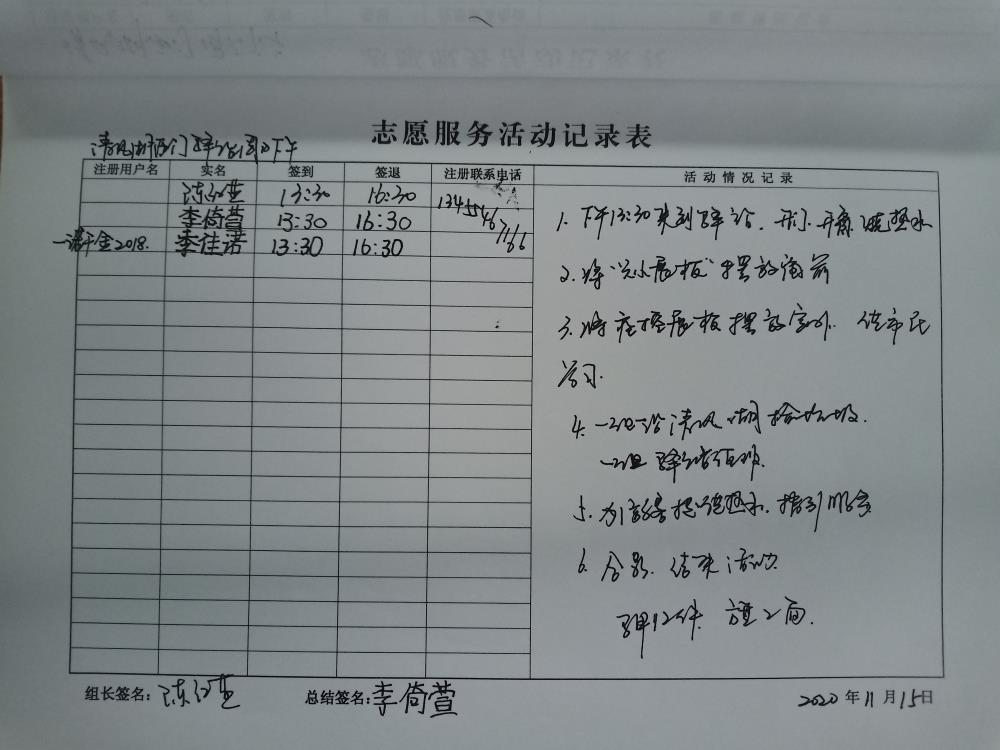 志愿服务活动记录表
清风湖西门驿站周日下午
注册用户名 实名 签到 签退 注册联系电话 活动情况记录
13:30 16:30 13455467166
李倚萱 13:30 16:30
一诺千金2018. 李佳诺 13:30 16:30
1. 下午13:30来到驿站，开门、开窗、烧热水
2. 将 展板 摆放
3. 将 展板摆放室外. 供市民
学习.
4. 一组沿清风湖捡垃圾.
一组驿站值班.
5. 为 提供热水. 指引服务
6. 合影. 结束活动.
12件. 2面.
组长签名: 总结签名: 李倚萱 2020 年 11 月 15 日